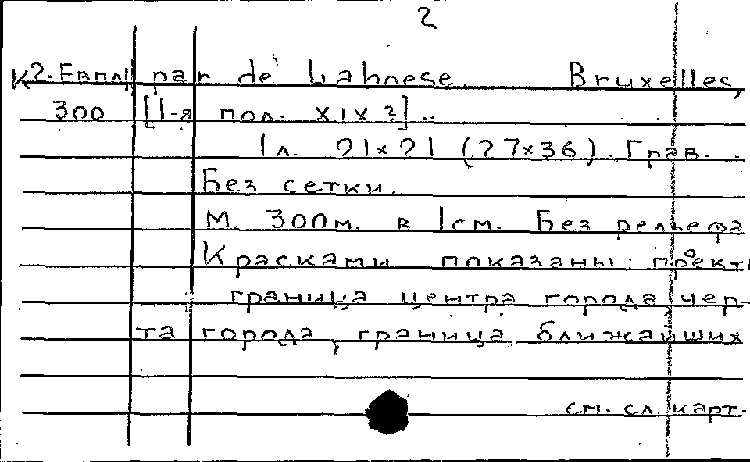 2
К2-Евпл par de Lahoese Bruxelles,
300 [1-я пол. XIX в] ..
1л. 21×21 (27×36). Грав.
Без сетки.
М. 300м. в 1см. Без рельефа
Красками показаны: проект.
граница центра города, чер-
та города, граница ближайших
см. сл. карт.